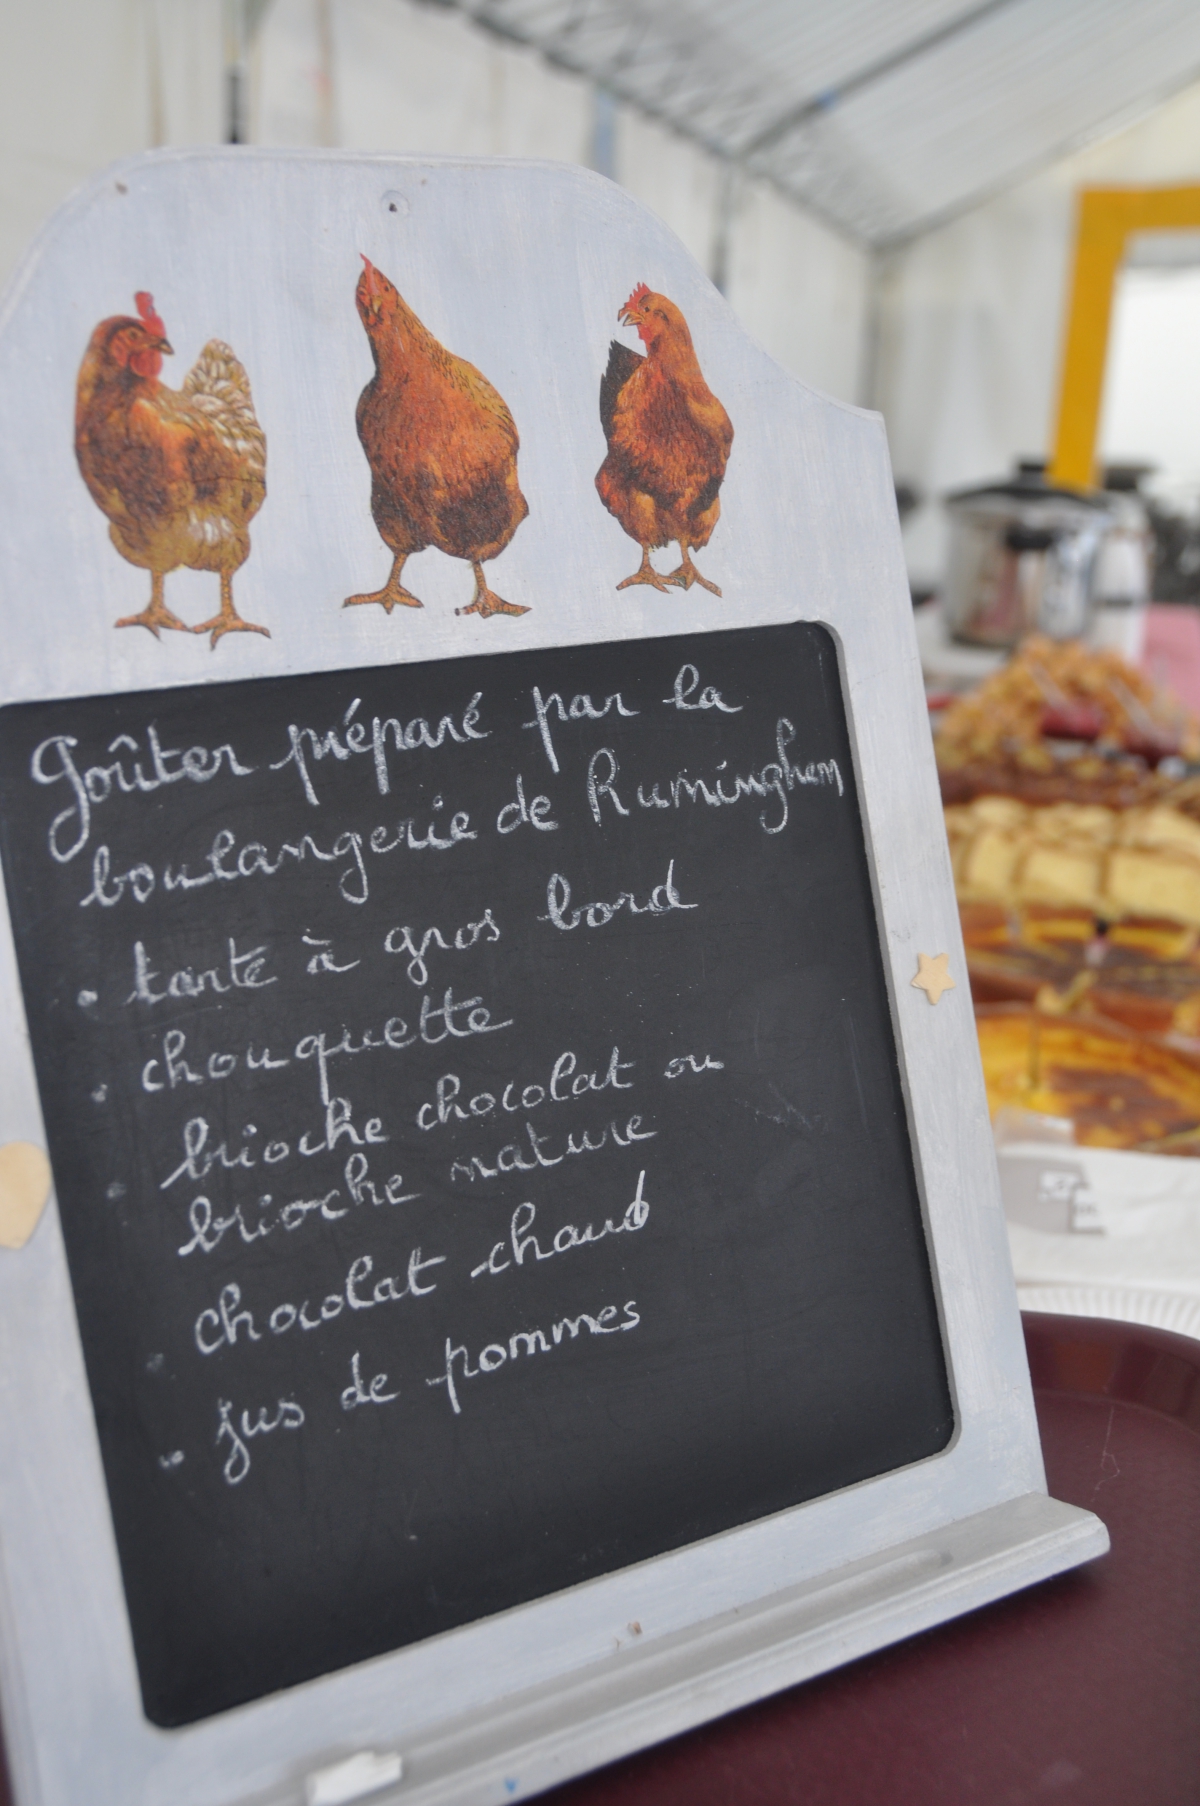 Goûter préparé par la
boulangerie de Ruminghem
• tarte à gros bord
• chouquette
• brioche chocolat ou
brioche nature
• chocolat chaud
• jus de pommes